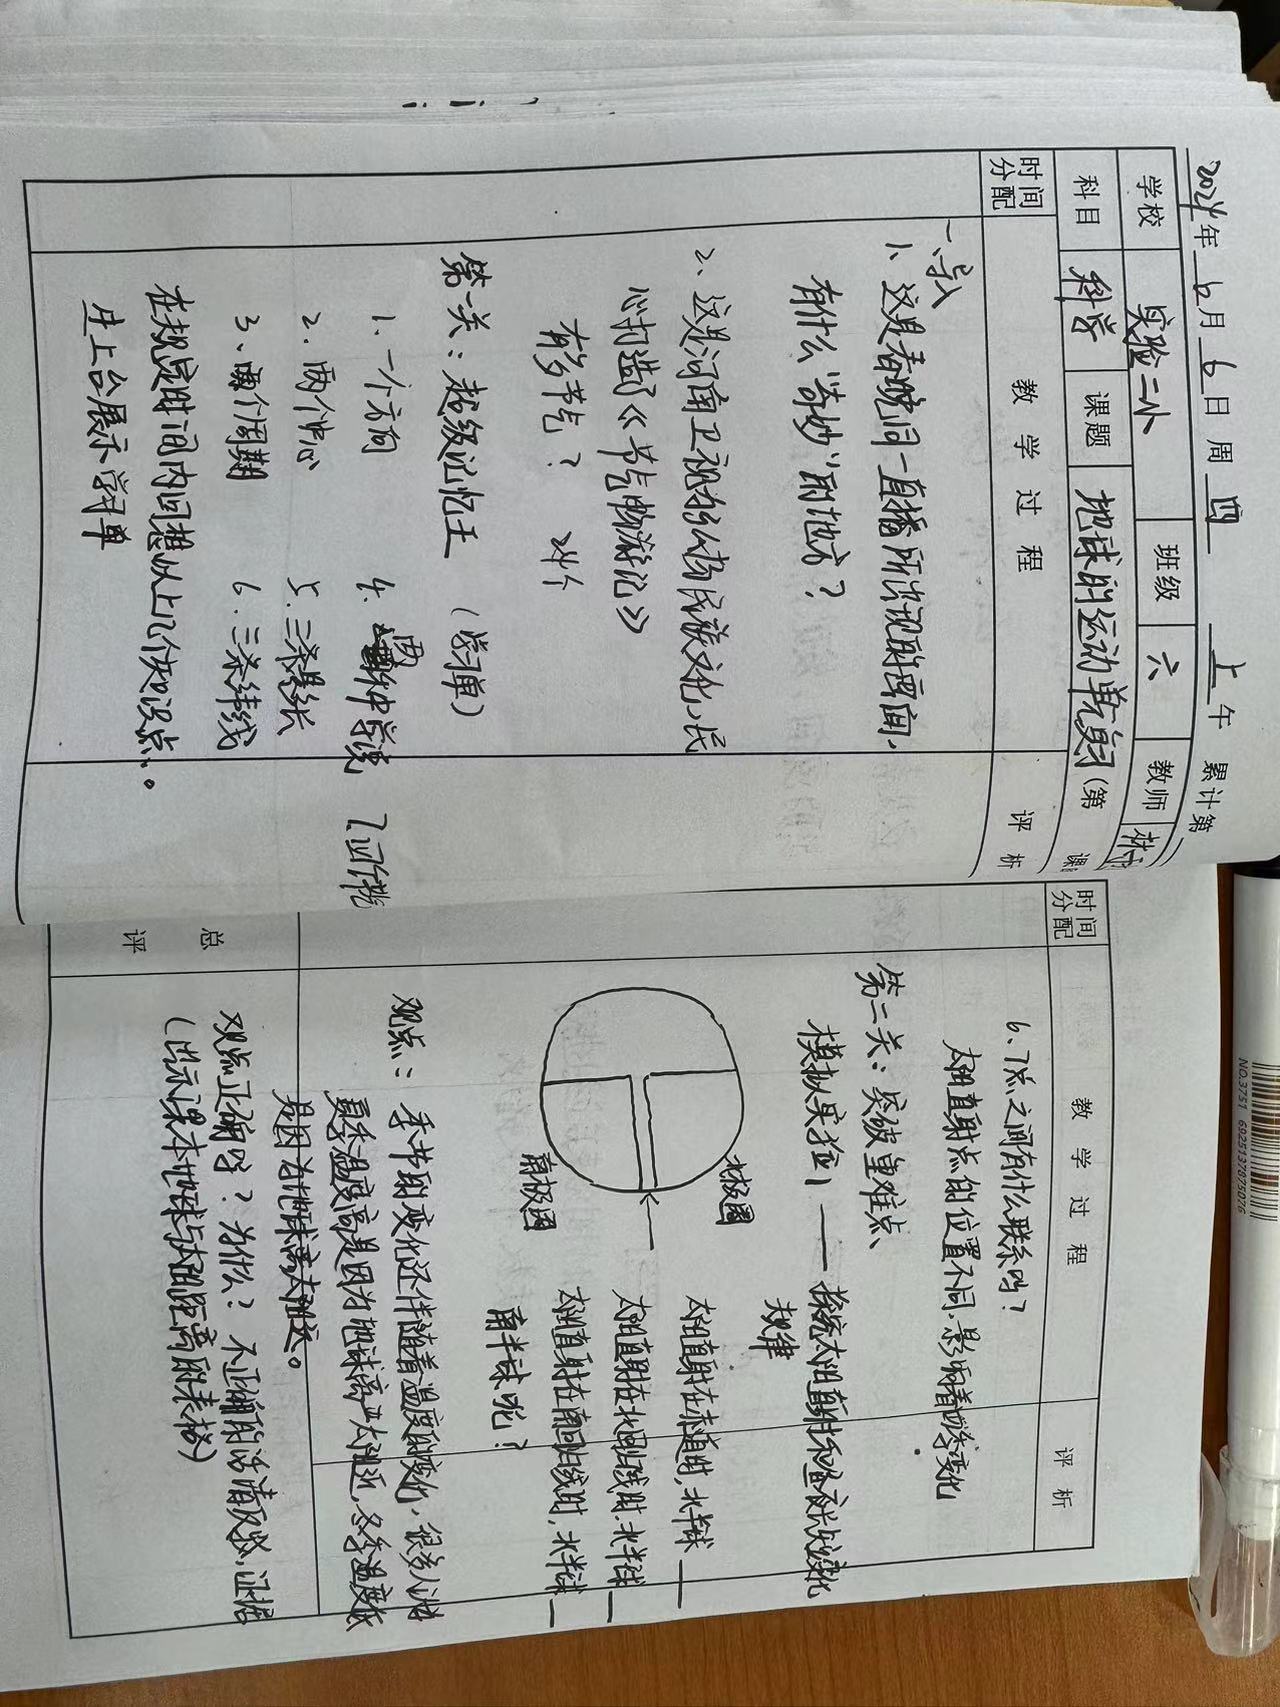 2024年 6月 6日 周 四 上 午 累计第
学校 实验二小 班级 六 教师 林
科目 科学 课题 地球的运动单元 (第 课
时间分配 教学过程 评析
一、导入
1、这是春晚同一直播所出现的画面,
有什么“奇妙”的地方?
2、这是河南卫视为弘扬民族文化,民
心打造了《节气畅游记》
有多节气? 24个
第一关:超级记忆王 (学习单)
1、一个方向
2、两个中心
3、两个周期
4、两种学说
5、三条晷线
6、三条纬线
7、四个
在规定时间内回想以上几个知识点。
生上台展示学习单
时间分配 教学过程 评析
6、7点之间有什么联系吗?
太阳直射点的位置不同,影响着四季变化
第二关:突破重难点
模拟实验1——探究太阳直射和昼夜长短变化
规律
北极圈
南极圈
太阳直射在赤道时,北半球__
太阳直射在北回归线时,北半球__
太阳直射在南回归线时,北半球__
南半球呢?
观点: 季节的变化还伴随着温度的变化,很多人认为
夏季温度高是因为地球离太阳近,冬季温度低
是因为地球离太阳远。
观点正确吗?为什么?不正确的话请反驳,证据
(出示课本地球与太阳距离的表格)
总评
NO.3751 6925137875076